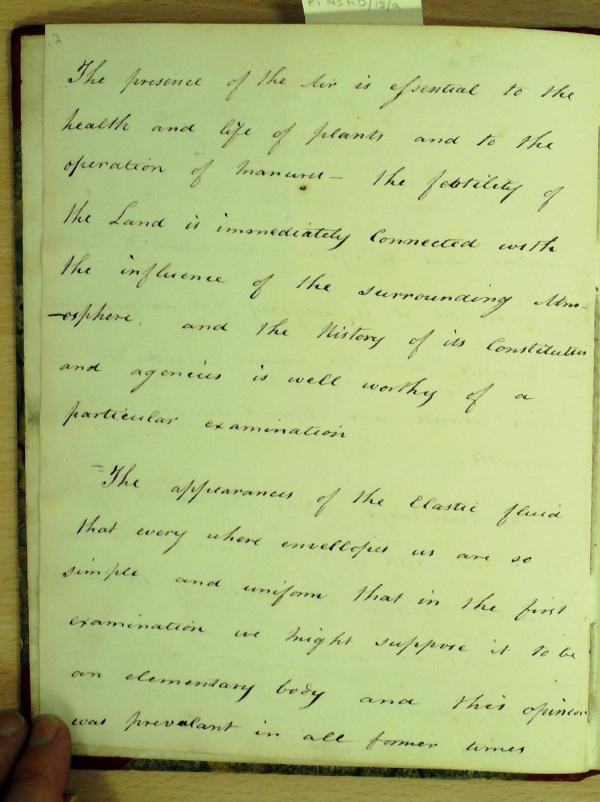 RI MS HD/13/a
2
The presence of the Air is essential to the
health and life of plants and to the
operation of manures – the fertility of
the Land is immediately Connected with
the influence of the surrounding Atm-
-osphere. and the History of its Constitution
and agencies is well worthy of a
particular examination
The appearances of the Elastic fluid
that every where envellopes us are so
simple and uniform that in the first
examination we might suppose it to be
an elementary body and this opinion
was prevalant in all former times